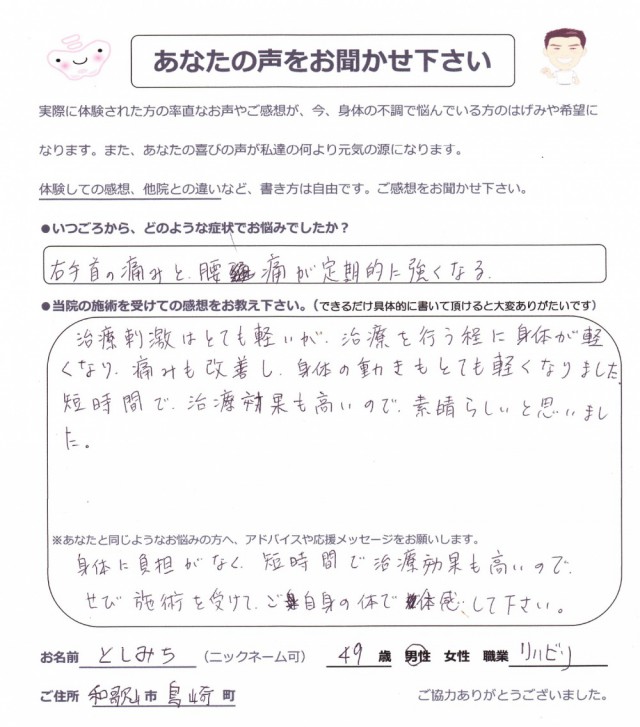 あなたの声をお聞かせ下さい
実際に体験された方の率直なお声やご感想が、今、身体の不調で悩んでいる方のはげみや希望に
なります。また、あなたの喜びの声が私達の何より元気の源になります。
体験しての感想、他院との違いなど、書き方は自由です。ご感想をお聞かせ下さい。
●いつごろから、どのような症状でお悩みでしたか？
右手首の痛みと、腰痛が定期的に強くなる。
●当院の施術を受けての感想をお教え下さい。（できるだけ具体的に書いて頂けると大変ありがたいです）
治療刺激はとても軽いが、治療を行う程に身体が軽
くなり、痛みも改善し、身体の動きもとても軽くなりました。
短時間で、治療効果も高いので、素晴らしいと思いまし
た。
※あなたと同じようなお悩みの方へ、アドバイスや応援メッセージをお願いします。
身体に負担がなく、短時間で治療効果も高いので、
せび施術を受けて、ご自身の体で体感して下さい。
お名前 としみち （ニックネーム可） 49 歳 男性 女性 職業 リハビリ
ご住所 和歌山市 島崎町 ご協力ありがとうございました。